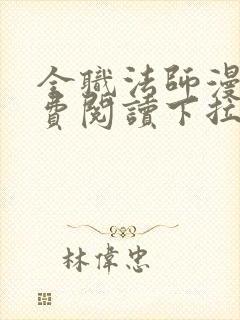 全職法師漫
費閱讀下拉
林偉忠